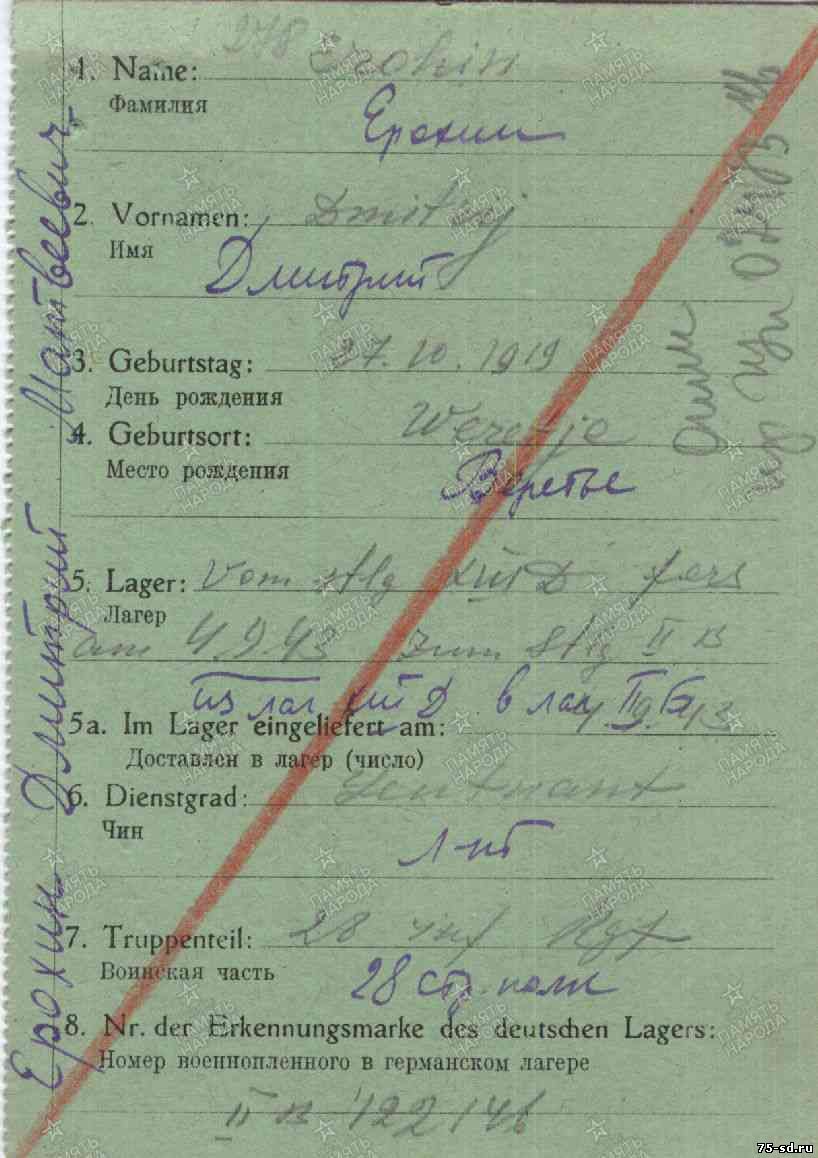 278 Erohin
1. Name:
Фамилия
Ерохин
2. Vornamen: Dmitrij
Имя
Дмитрий
3. Geburtstag: 27.10.1919
День рождения
4. Geburtsort: Weretje
Место рождения
Веретье
5. Lager: Vom Stlg XIII D
Лагер
am 4.9.43 zum Stlg II B
из лаг. XIII D в лаг II Б
5a. Im Lager eingeliefert am: 4.9.43
Доставлен в лагер (число)
6. Dienstgrad: Leutnant
Чин
л-нт
7. Truppenteil: 28 inf Rgt
Воинская часть
28 стр. полк
8. Nr. der Erkennungsmarke des deutschen Lagers:
Номер военнопленного в германском лагере
II B 122146
Ерохин Дмитрий Матвеевич
ПАМЯТЬ НАРОДА
75-sd.ru